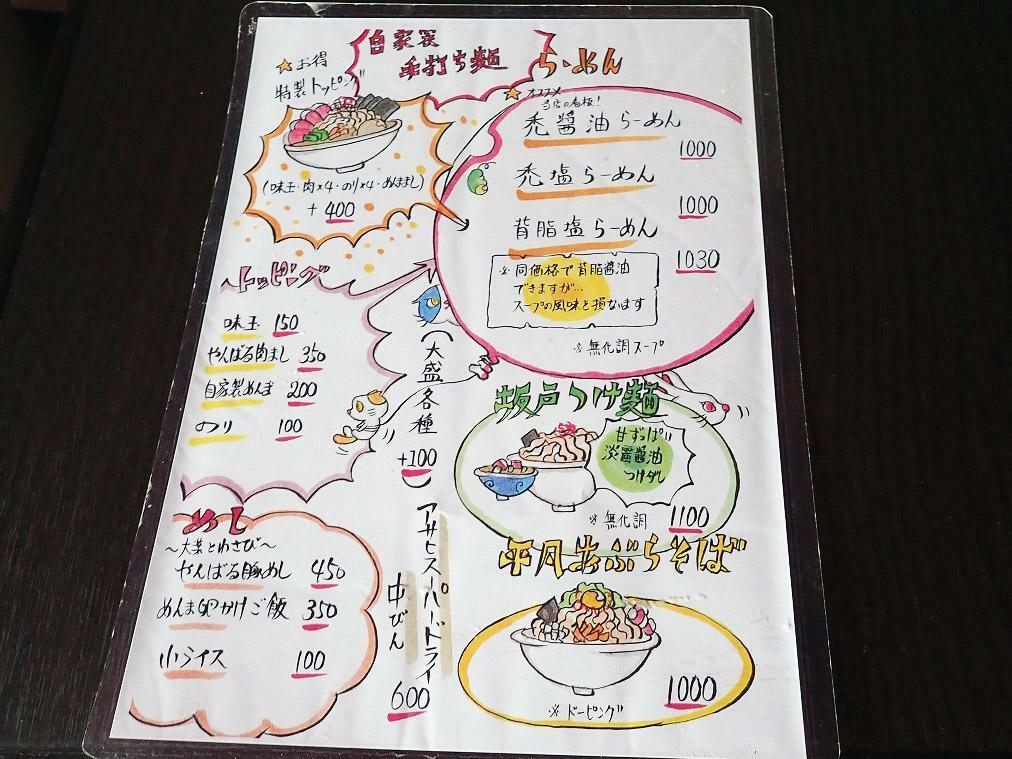 自家製
手打ち麺
らーめん
☆お得
特製トッピング
(味玉・肉×4・のり×4・めんまし)
+400
☆オススメ
当店の看板!
禿醤油らーめん
1000
禿塩らーめん
1000
背脂塩らーめん
1030
※同価格で背脂醤油
できますが…
スープの風味を損なます
※無化調スープ
トッピング
味玉 150
やんばる肉まし 350
自家製めんま 200
のり 100
(大盛各種
+100
坂戸つけ麺
甘ずっぱい
淡麗醤油
つけダレ
※無化調
1100
めし
~大葉とわさび~
やんばる豚めし 450
めんま卵かけご飯 350
小ライス 100
アサヒスーパードライ
中びん
600
平月あぶらそば
1000
※ドーピング